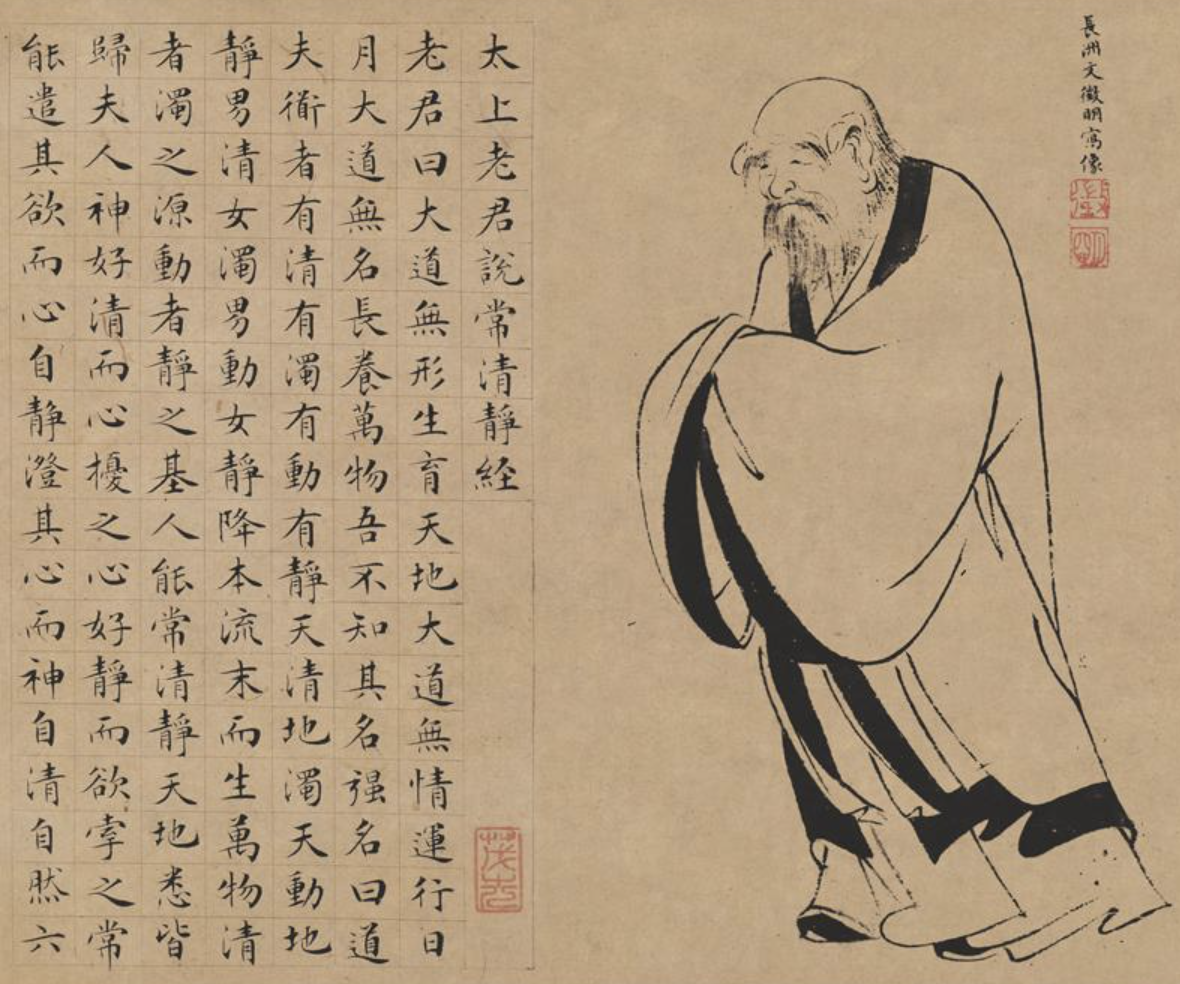 長洲文徵明寫像
太上老君說常清靜経
茂苑
老君曰大道無形生育天地大道無情運行日
月大道無名長養萬物吾不知其名强名曰道
夫衜者有清有濁有動有靜天清地濁天動地
靜男清女濁男動女靜降本流末而生萬物清
者濁之源動者靜之基人能常清靜天地悉皆
歸夫人神好清而心擾之心好靜而欲牽之常
能遣其欲而心自静澄其心而神自清自然六